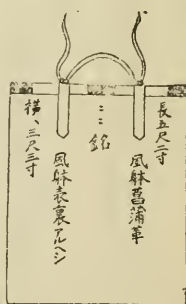 長五尺二寸
風躰菖蒲革
ここ銘
風躰表裏アルヘシ
横、三尺三寸